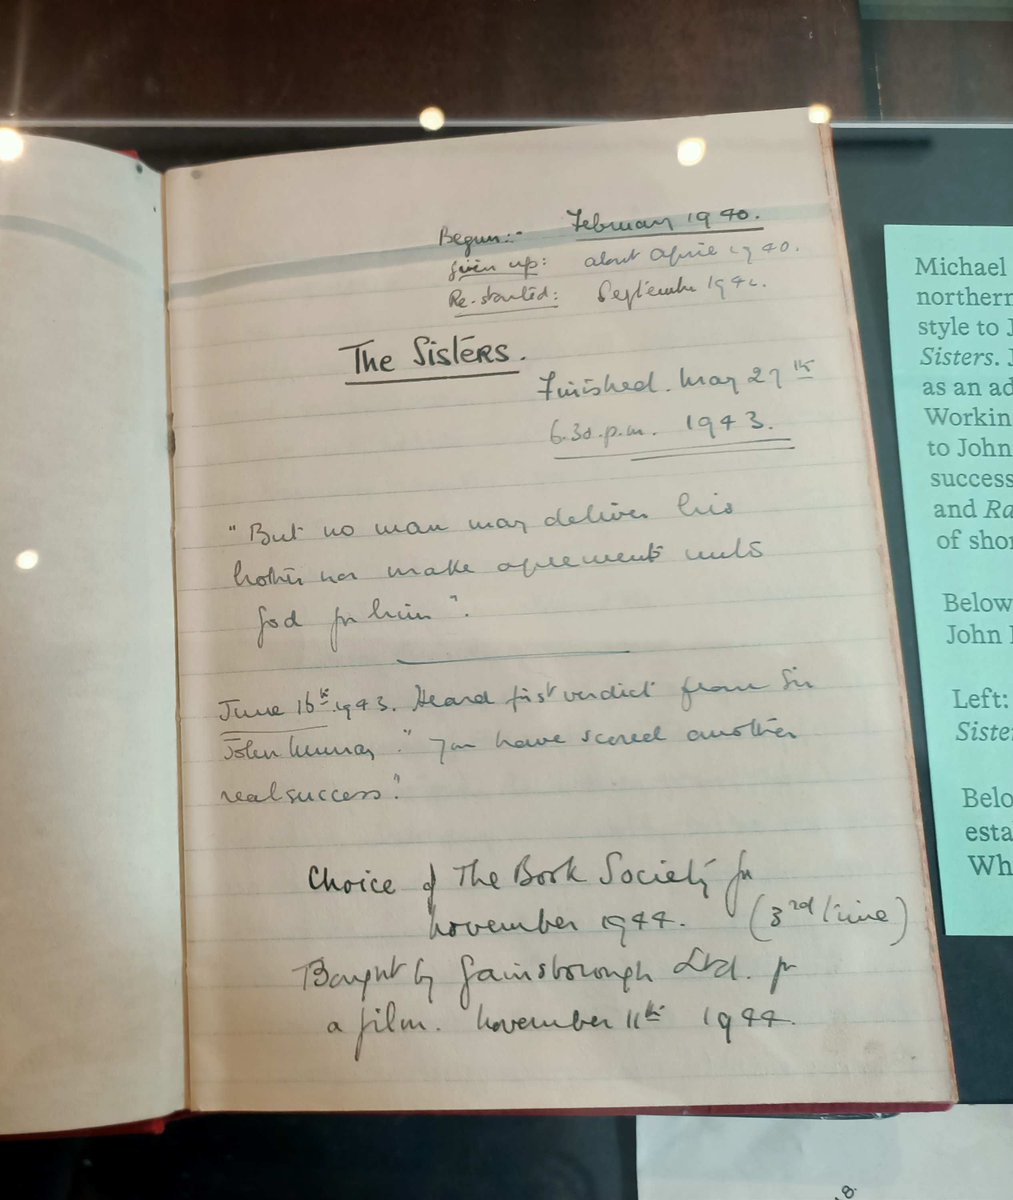 Begun:- February 1940.
Given up: about April 1940.
Re-started: September 1942.
The Sisters.
Finished. May 27th
6.30.p.m. 1943.
"But no man may deliver his
brother nor make agreements unto
God for him".
June 16th 1943. Heard first verdict from Sir
John Murray. "You have scored another
real success."
Choice of The Book Society for
November 1944. (3rd time)
Bought by Gainsborough Ltd. for
a film. November 11th 1944.
Michael
northern
style to J
Sisters. J
as an ad
Workin
to John
success
and Ra
of shor
Below
John
Left:
Siste
Belo
esta
Wh
8.